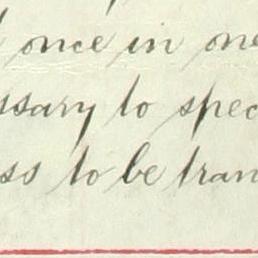 once in ne
ssary to spec
ss to be tran